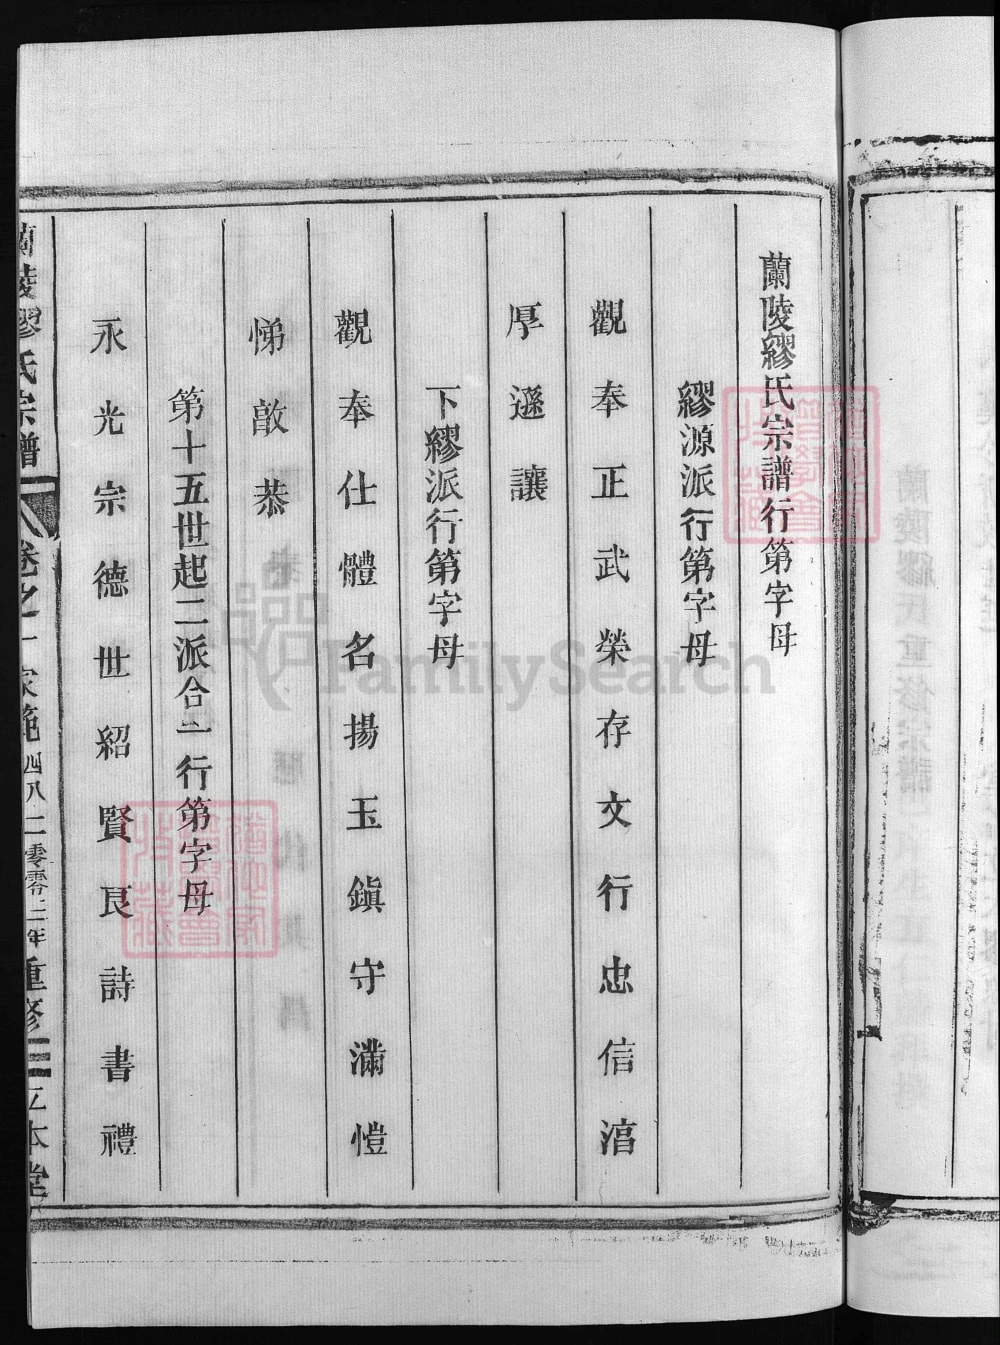 蘭陵繆氏宗譜行第字母
繆源派行第字母
觀奉正武榮存文行忠信㳷
厚遜讓
下繆派行第字母
觀奉仕體名揚玉鎮守滿愷
悌敬恭
第十五世起二派合一行第字母
永光宗德世紹賢良詩書禮
蘭陵繆氏宗譜 卷之一 家範 四八 二零零三年重修 立本堂
FamilySearch